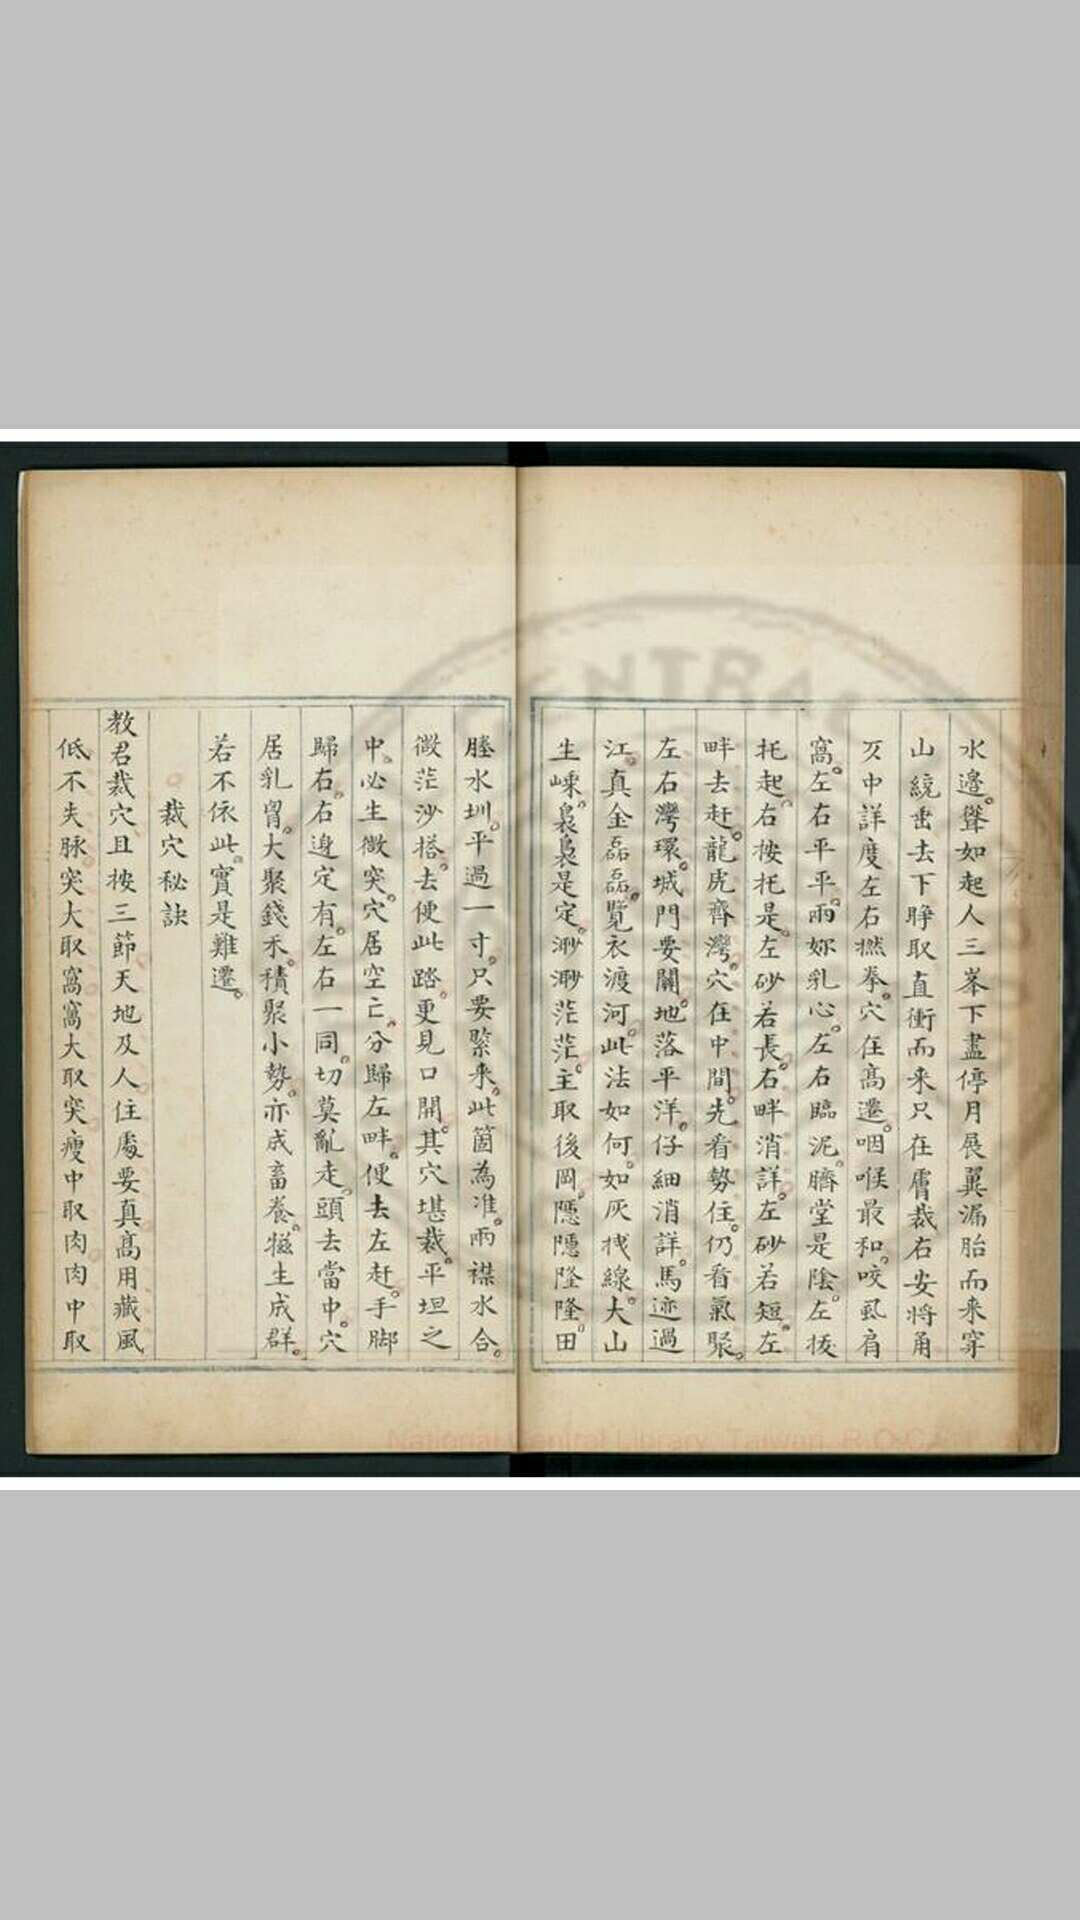 水邉聳如起人三峯下盡停月展翼漏胎而来穿
山繞出去下睁取直衝而来只在膚裁右安将角
中詳度左右撚拳穴在髙遷咽喉最和咬虱肩
窩左右平平兩妳乳心左右臨泥臍堂是陰左
托起右按托是左砂若長右畔消詳左砂若短左
畔去赶龍虎齊灣穴在中間先看勢住仍看氣聚
左右灣環城門要關地落平洋仔細消詳馬迹過
江真金磊磊覽衣渡河此法如何如灰線大山
生嵊裊裊是定渺渺茫茫主取後岡隱隱隆隆田
塍水圳平過一寸只要緊乗此箇為准兩襟水合
微茫沙搭去便此踏更見口開其穴堪裁平坦之
中必生微突穴居空亡分歸左畔便去左赶手脚
歸右右邉定有左右一同切莫亂走頭去當中穴
居乳胷大聚錢禾積聚小勢亦成畜養㹀生成群
若不依此實是難遷
裁穴秘訣
教君裁穴且按三節天地及人住處要真髙用藏風
低不失脉突大取窩窩大取突瘦中取肉肉中取
National Central Library, Taiwan, R.O.C.